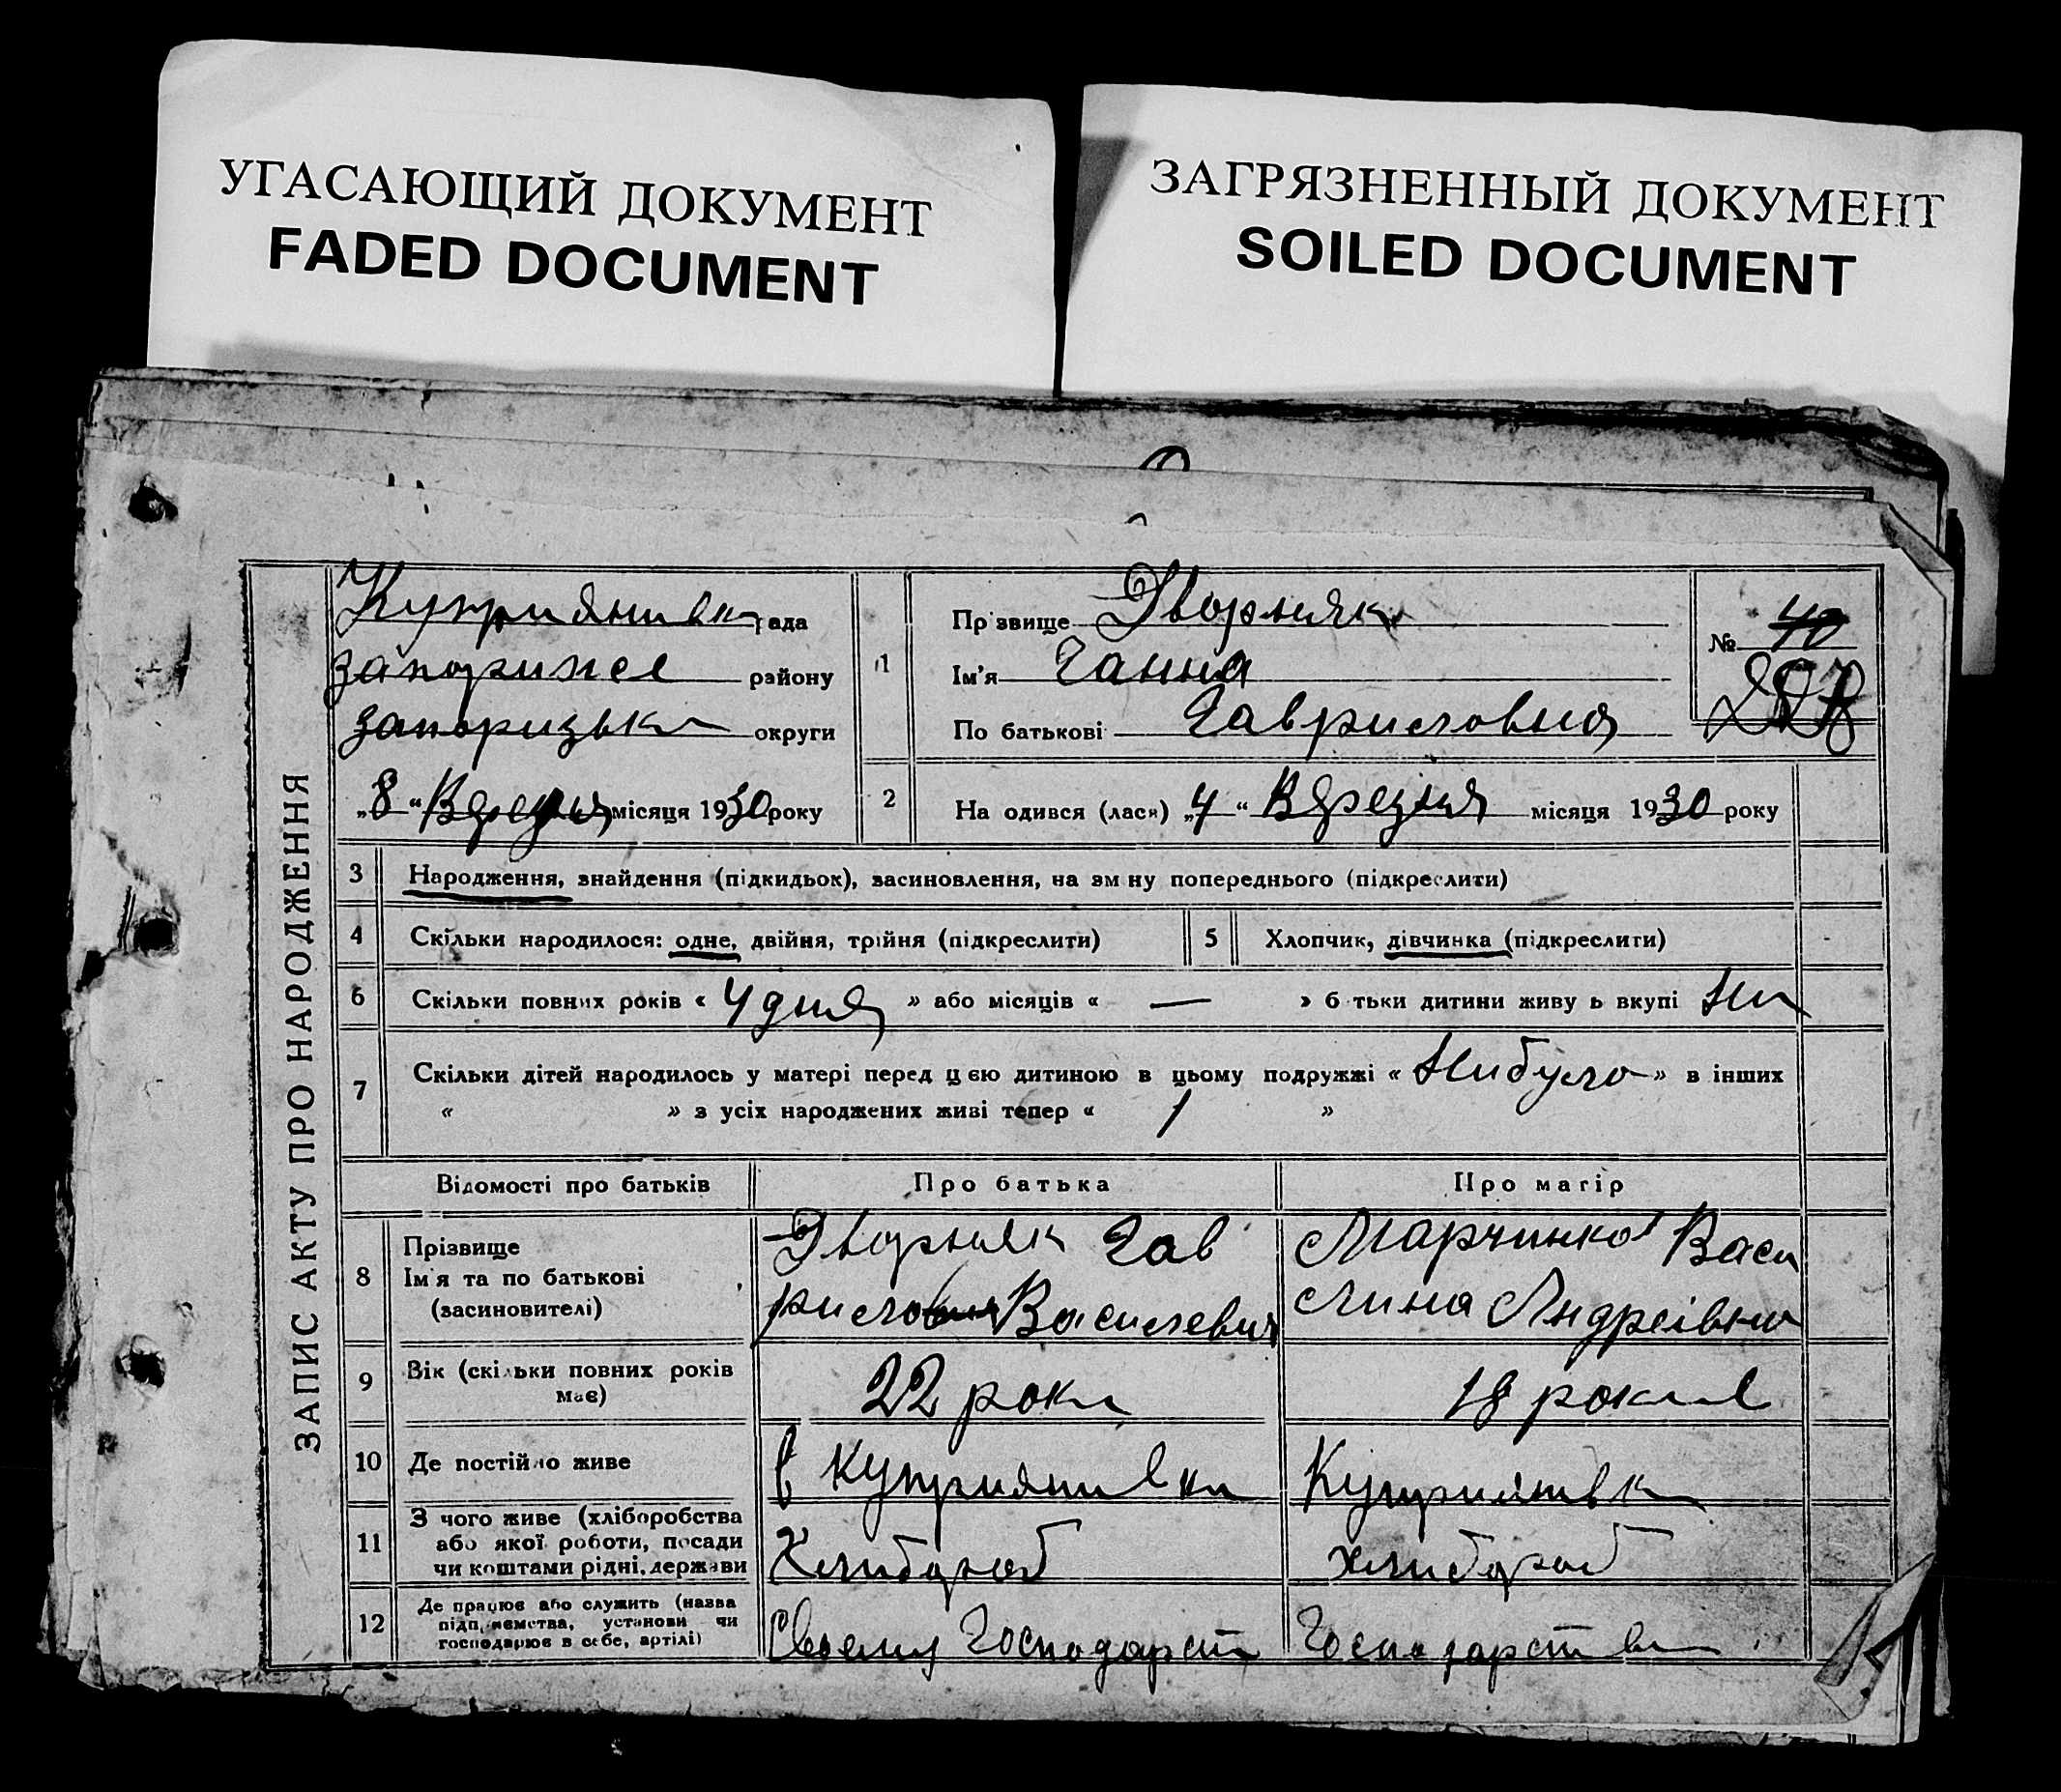 УГАСАЮЩИЙ ДОКУМЕНТ
FADED DOCUMENT
ЗАГРЯЗНЕННЫЙ ДОКУМЕНТ
SOILED DOCUMENT
ЗАПИС АКТУ ПРО НАРОДЖЕННЯ
Куприянивка рада
запорижжя району
запоризька округи
„8“ Вересня місяця 1930 року
1
Прізвище Дворняк
Ім'я Ганна
По батькові Гавриловна
№ 40
2 На одився (лася) „4“ Вересня місяця 1930 року
3 Народження, знайдення (підкидьок), засиновлення, на зм ну попереднього (підкреслити)
4 Скільки народилося: одне, двійня, трійня (підкреслити)
5 Хлопчик, дівчинка (підкреслити)
6 Скільки повних років « 4 дня » або місяців « — » б тьки дитини живу ь вкупі
7 Скільки дітей народилось у матері перед цією дитиною в цьому подружжі « Нибуло » в інших
« » з усіх народжених живі тепер « 1 »
Відомості про батьків Про батька Про матір
8 Прізвище
Ім'я та по батькові
(засиновителі)
Дворняк Гав
рило Василевич
Марчинко Васи
лина Андреівна
9 Вік (скільки повних років
має)
22 роки
18 рокив
10 Де постійно живе
в Куприянивки
Куприянивка
11 З чого живе (хліборобства
або якої роботи, посади
чи коштами рідні, держави
Хлибороб
хлибороб
12 Де працює або служить (назва
підприємства, установи чи
господарює в себе, артілі)
Своему Господарст
Господарстви